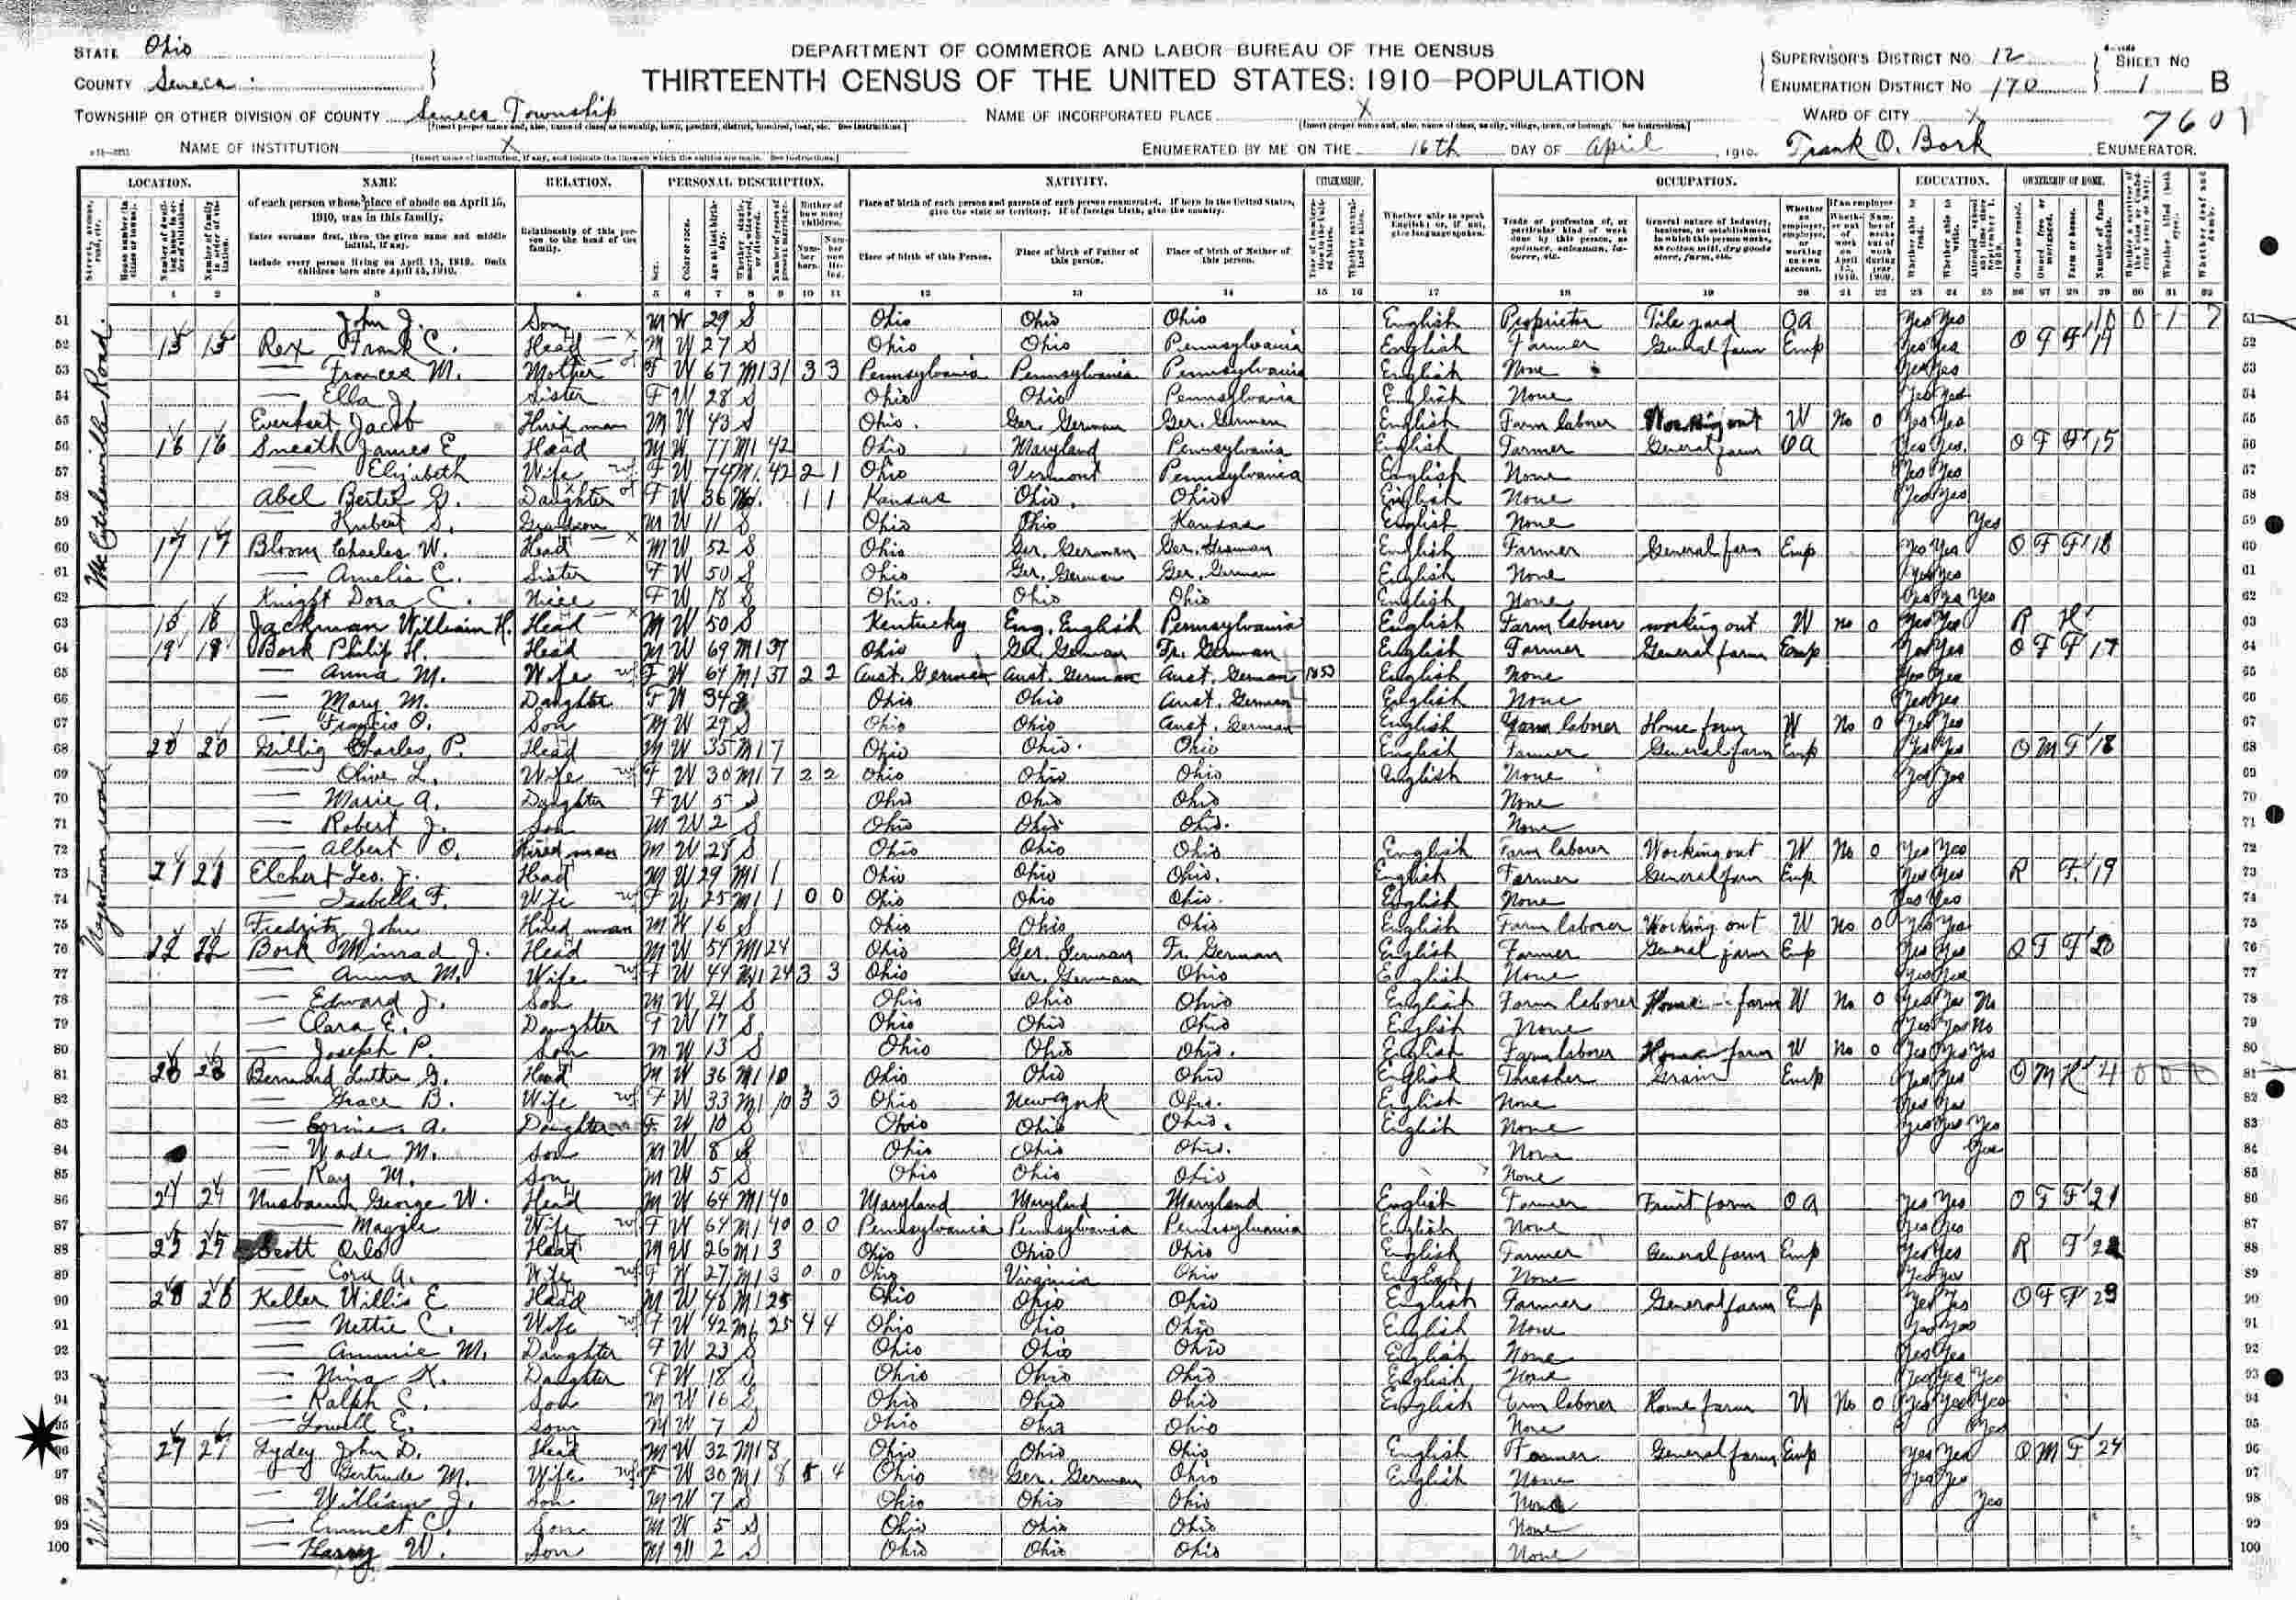 STATE Ohio
COUNTY Seneca
TOWNSHIP OR OTHER DIVISION OF COUNTY Seneca Township
NAME OF INSTITUTION X
DEPARTMENT OF COMMERCE AND LABOR–BUREAU OF THE CENSUS
THIRTEENTH CENSUS OF THE UNITED STATES: 1910—POPULATION
NAME OF INCORPORATED PLACE X
ENUMERATED BY ME ON THE 16th DAY OF April, 1910. Frank O. Bork ENUMERATOR.
SUPERVISOR'S DISTRICT NO. 12
ENUMERATION DISTRICT NO. 170
SHEET NO. 1 B
WARD OF CITY X
7601
LOCATION. NAME RELATION. PERSONAL DESCRIPTION. NATIVITY. CITIZENSHIP. OCCUPATION. EDUCATION. OWNERSHIP OF HOME.
of each person whose place of abode on April 15, 1910, was in this family.
Enter surname first, then the given name and middle initial, if any.
Include every person living on April 15, 1910. Omit children born since April 15, 1910.
Relationship of this person to the head of the family.
Place of birth of each person and parents of each person enumerated. If born in the United States, give the state or territory. If of foreign birth, give the country.
Place of birth of this Person. Place of birth of Father of this person. Place of birth of Mother of this person.
Whether able to speak English; or, if not, give language spoken.
1 2 3 4 5 6 7 8 9 10 11 12 13 14 15 16 17 18 19 20 21 22 23 24 25 26 27 28 29 30 31 32
51 John J. Son M W 29 S Ohio Ohio Ohio English Proprietor Tile yard OA Yes Yes 51
52 15 15 Rex Frank C. Head M W 27 S Ohio Ohio Pennsylvania English Farmer General farm Emp Yes Yes O F F 52
53 Frances M. Mother F W 67 M1 31 3 3 Pennsylvania Pennsylvania Pennsylvania English None Yes Yes 53
54 Ella J. Sister F W 28 S Ohio Ohio Pennsylvania English None Yes Yes 54
55 Everhart Jacob Hired man M W 43 S Ohio Ger. German Ger. German English Farm laborer Working out W No 0 Yes Yes 55
56 16 16 Sneath James E. Head M W 77 M1 42 Ohio Maryland Pennsylvania English Farmer General farm OA Yes Yes O F F 15 56
57 Elizabeth Wife F W 74 M1 42 2 1 Ohio Vermont Pennsylvania English None Yes Yes 57
58 Abel Bertie Daughter F W 36 1 1 Kansas Ohio Ohio English None Yes Yes 58
59 Hubert S. Grandson M W 11 S Ohio Ohio Kansas English None Yes 59
60 17 17 Bloom Charles W. Head M W 52 S Ohio Ger. German Ger. German English Farmer General farm Emp Yes Yes O F F 16 60
61 Amelia C. Sister F W 50 S Ohio Ger. German Ger. German English None Yes Yes 61
62 Knight Dora C. Niece F W 18 S Ohio Ohio Ohio English None Yes Yes Yes 62
63 18 18 Jackman William H. Head M W 50 S Kentucky Eng. English Pennsylvania English Farm laborer working out W no 0 Yes Yes R H 63
64 19 19 Bork Philip H. Head M W 69 M1 37 Ohio Ger. German Fr. German English Farmer General farm Emp Yes Yes O F F 17 64
65 Anna M. Wife F W 64 M1 37 2 2 Aust. German Aust. German Aust. German 1853 English None Yes Yes 65
66 Mary M. Daughter F W 34 S Ohio Ohio Aust. German English None Yes Yes 66
67 Francis O. Son M W 29 S Ohio Ohio Aust. German English Farm laborer Home farm W No 0 Yes Yes 67
68 20 20 Gillig Charles P. Head M W 35 M1 7 Ohio Ohio Ohio English Farmer General farm Emp Yes Yes O M F 18 68
69 Olive L. Wife F W 30 M1 7 2 2 Ohio Ohio Ohio English None Yes Yes 69
70 Marie A. Daughter F W 5 S Ohio Ohio Ohio None 70
71 Robert J. Son M W 2 S Ohio Ohio Ohio None 71
72 Albert O. Hired man M W 28 S Ohio Ohio Ohio English Farm laborer Working out W No 0 Yes Yes 72
73 21 21 Elchert Geo. J. Head M W 29 M1 1 Ohio Ohio Ohio English Farmer General farm Emp Yes Yes R F 19 73
74 Isabella F. Wife F W 25 M1 1 0 0 Ohio Ohio Ohio English None Yes Yes 74
75 John Hired man M W 16 S Ohio Ohio Ohio English Farm laborer Working out W No 0 Yes Yes 75
76 22 22 Bork Minrad J. Head M W 54 M1 24 Ohio Ger. German Fr. German English Farmer General farm Emp Yes Yes O F F 20 76
77 Anna M. Wife F W 44 M1 24 3 3 Ohio Ger. German Ohio English None Yes Yes 77
78 Edward J. Son M W 21 S Ohio Ohio Ohio English Farm laborer Home farm W No 0 Yes Yes No 78
79 Clara E. Daughter F W 17 S Ohio Ohio Ohio English None Yes Yes No 79
80 Joseph P. Son M W 13 S Ohio Ohio Ohio English Farm laborer Home farm W No 0 Yes Yes Yes 80
81 23 23 Bernard Luther G. Head M W 36 M1 10 Ohio Ohio Ohio English Thresher Grain Emp Yes Yes O M H 81
82 Grace B. Wife F W 33 M1 10 3 3 Ohio New York Ohio English None Yes Yes 82
83 Corine A. Daughter F W 10 S Ohio Ohio Ohio English None Yes Yes Yes 83
84 Wade M. Son M W 8 S Ohio Ohio Ohio None Yes 84
85 Ray M. Son M W 5 S Ohio Ohio Ohio None 85
86 24 24 Nusbaum George W. Head M W 64 M1 40 Maryland Maryland Maryland English Farmer Fruit farm OA Yes Yes O F F 21 86
87 Maggie Wife F W 64 M1 40 0 0 Pennsylvania Pennsylvania Pennsylvania English None Yes Yes 87
88 25 25 Scott Orlo Head M W 26 M1 3 Ohio Ohio Ohio English Farmer General farm Emp Yes Yes R F 22 88
89 Cora A. Wife F W 27 M1 3 0 0 Ohio Virginia Ohio English None Yes Yes 89
90 26 26 Keller Willis E. Head M W 46 M1 25 Ohio Ohio Ohio English Farmer General farm Emp Yes Yes O F F 23 90
91 Nettie C. Wife F W 42 M1 25 4 4 Ohio Ohio Ohio English None Yes Yes 91
92 Ammie M. Daughter F W 23 S Ohio Ohio Ohio English None Yes Yes 92
93 Nina K. Daughter F W 18 S Ohio Ohio Ohio English None Yes Yes Yes 93
94 Ralph C. Son M W 16 S Ohio Ohio Ohio English Farm laborer Home farm W No 0 Yes Yes Yes 94
95 Lowell E. Son M W 7 S Ohio Ohio Ohio None Yes 95
96 27 27 Lydey John D. Head M W 32 M1 8 Ohio Ohio Ohio English Farmer General farm Emp Yes Yes O M F 24 96
97 Gertrude M. Wife F W 30 M1 8 4 Ohio Ger. German Ohio English None Yes Yes 97
98 William J. Son M W 7 S Ohio Ohio Ohio None Yes 98
99 Emmet C. Son M W 5 S Ohio Ohio Ohio None 99
100 Harry W. Son M W 2 S Ohio Ohio Ohio None 100
McCutchenville Road
Wilson road